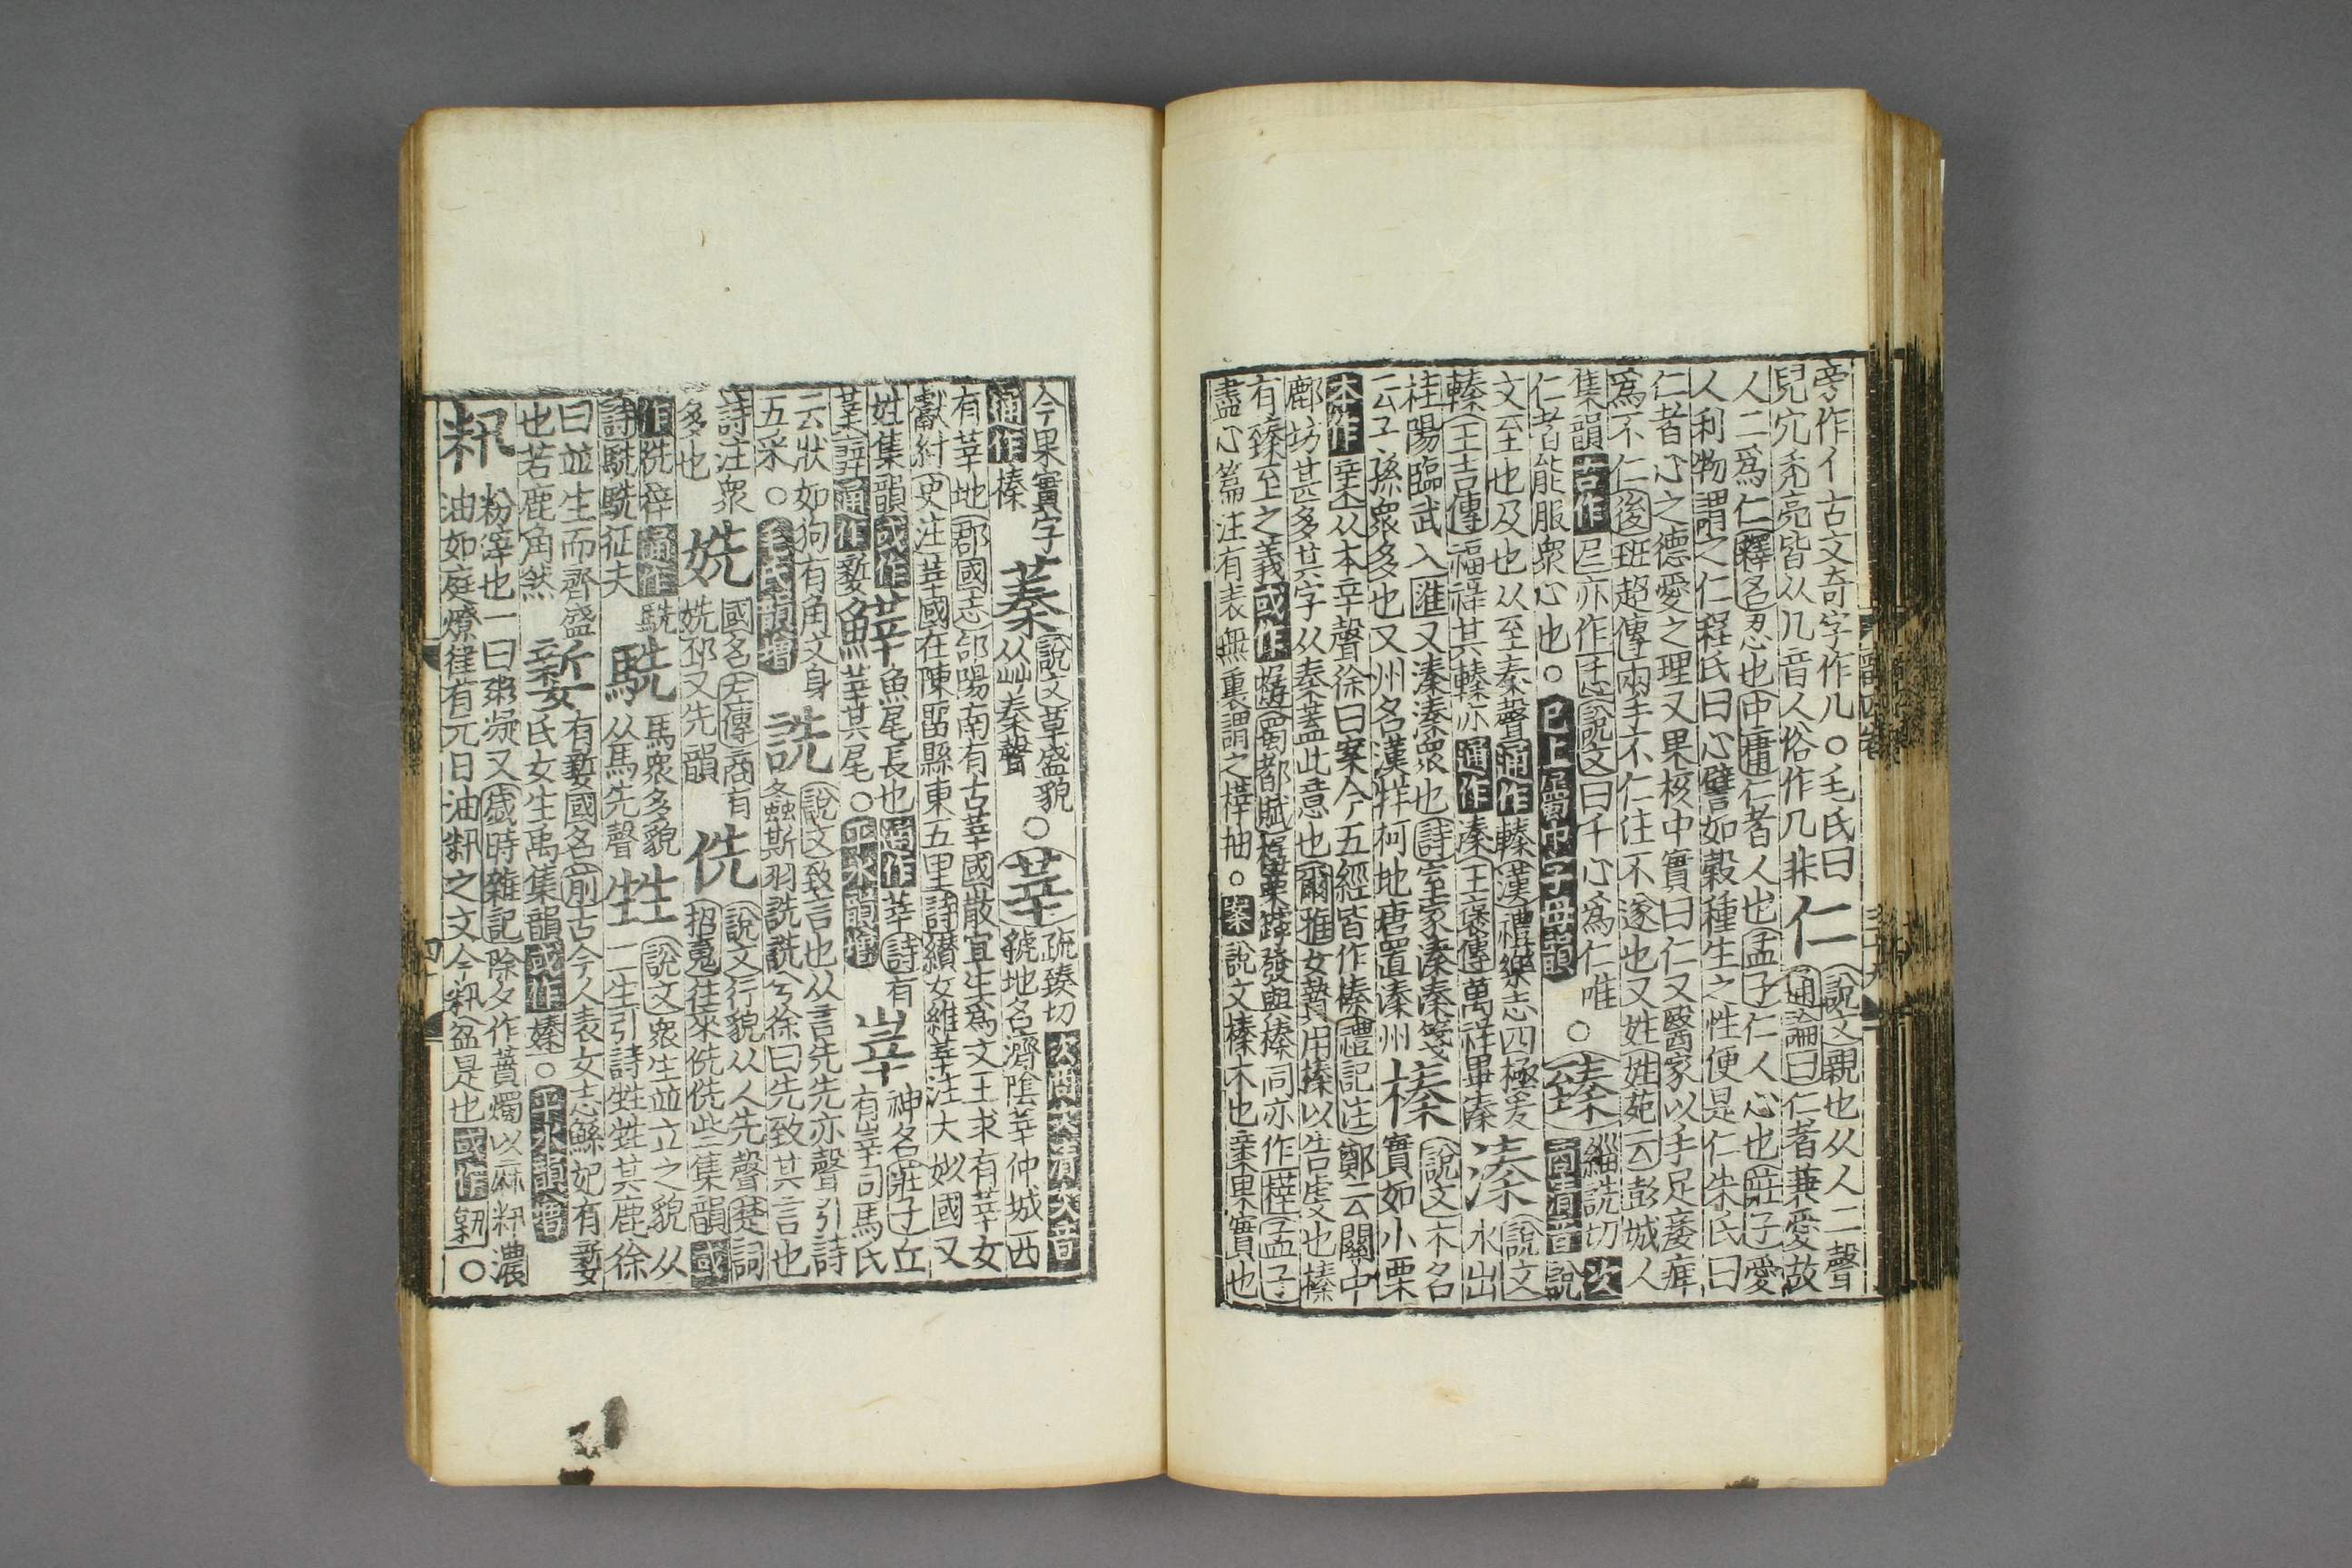 旁作亻古文奇字作儿○毛氏曰
兒亢禿亮皆从儿音人俗作几非
仁
說文親也从人二聲
通論曰仁者兼愛故
人二爲仁釋名忍也中庸仁者人也孟子仁人心也莊子愛
人利物謂之仁程氏曰心譬如穀種生之性便是仁朱氏曰
仁者心之德愛之理又果核中實曰仁又醫家以手足痿痺
爲不仁後班超傳兩手不仁注不遂也又姓姓苑云彭城人
集韻古作𡰥亦作忎說文曰千心爲仁唯
仁者能服衆心也○已上屬中子母韻
○臻
緇詵切次
商清音說
文至也及也从至秦聲通作轃漢禮樂志四極爰
轃王吉傳福祥其轃亦通作溱王褒傳萬祥畢溱
溱
說文
水出
桂陽臨武入匯又溱溱衆也詩室家溱溱箋
云子孫衆多也又州名漢牂柯地唐置溱州
榛
說文木名
實如小栗
本作亲从木辛聲徐曰案今五經皆作榛禮記注鄭云關中
鄜坊甚多其字从秦蓋此意也爾雅女贄用榛以告虔也榛
有臻至之義或作樼蜀都賦樼栗罅發與榛同亦作榛孟子
盡心篇注有表無裏謂之梓抽○案說文榛木也亲果實也
今果實字
通作榛
蓁
說文草盛貌
从艸秦聲
○莘
疏臻切次商次清次音
虢地名濟陰莘仲城西
有莘地郡國志郃陽南有古莘國散宜生爲文王求有莘女
獻紂史注莘國在陳留縣東五里詩纘女維莘注大姒國又
姓集韻或作莘
𡥈辭通作㜪
鮮
魚尾長也通作莘詩有
莘其尾○平水韻增
峷
神名莊子丘
有峷司馬氏
云狀如狗有角文身
五采○毛氏韻增
詵
說文致言也从言先先亦聲引詩
螽斯羽詵詵兮徐曰先致其言也
詩注衆
多也
姺
國名左傳商有
姺邳又先韻
侁
說文行貌从人先聲楚詞
招䰟往來侁侁些集韻或
作㳙𢔟通作駪
詩駪駪征夫
駪
馬衆多貌
从馬先聲
甡
說文衆生並立之貌从
二生引詩甡甡其鹿徐
曰並生而齊盛
也若鹿角然
㜪
有㜪國名前古今人表女志鯀妃有㜪
氏女生禹集韻或作嫀○平水韻增
籸
粉滓也一曰粥凝又歲時雜記除夕作蕡燭以麻籸濃
油如庭燎律有元日油籸之文今籸盆是也或作𥹢○